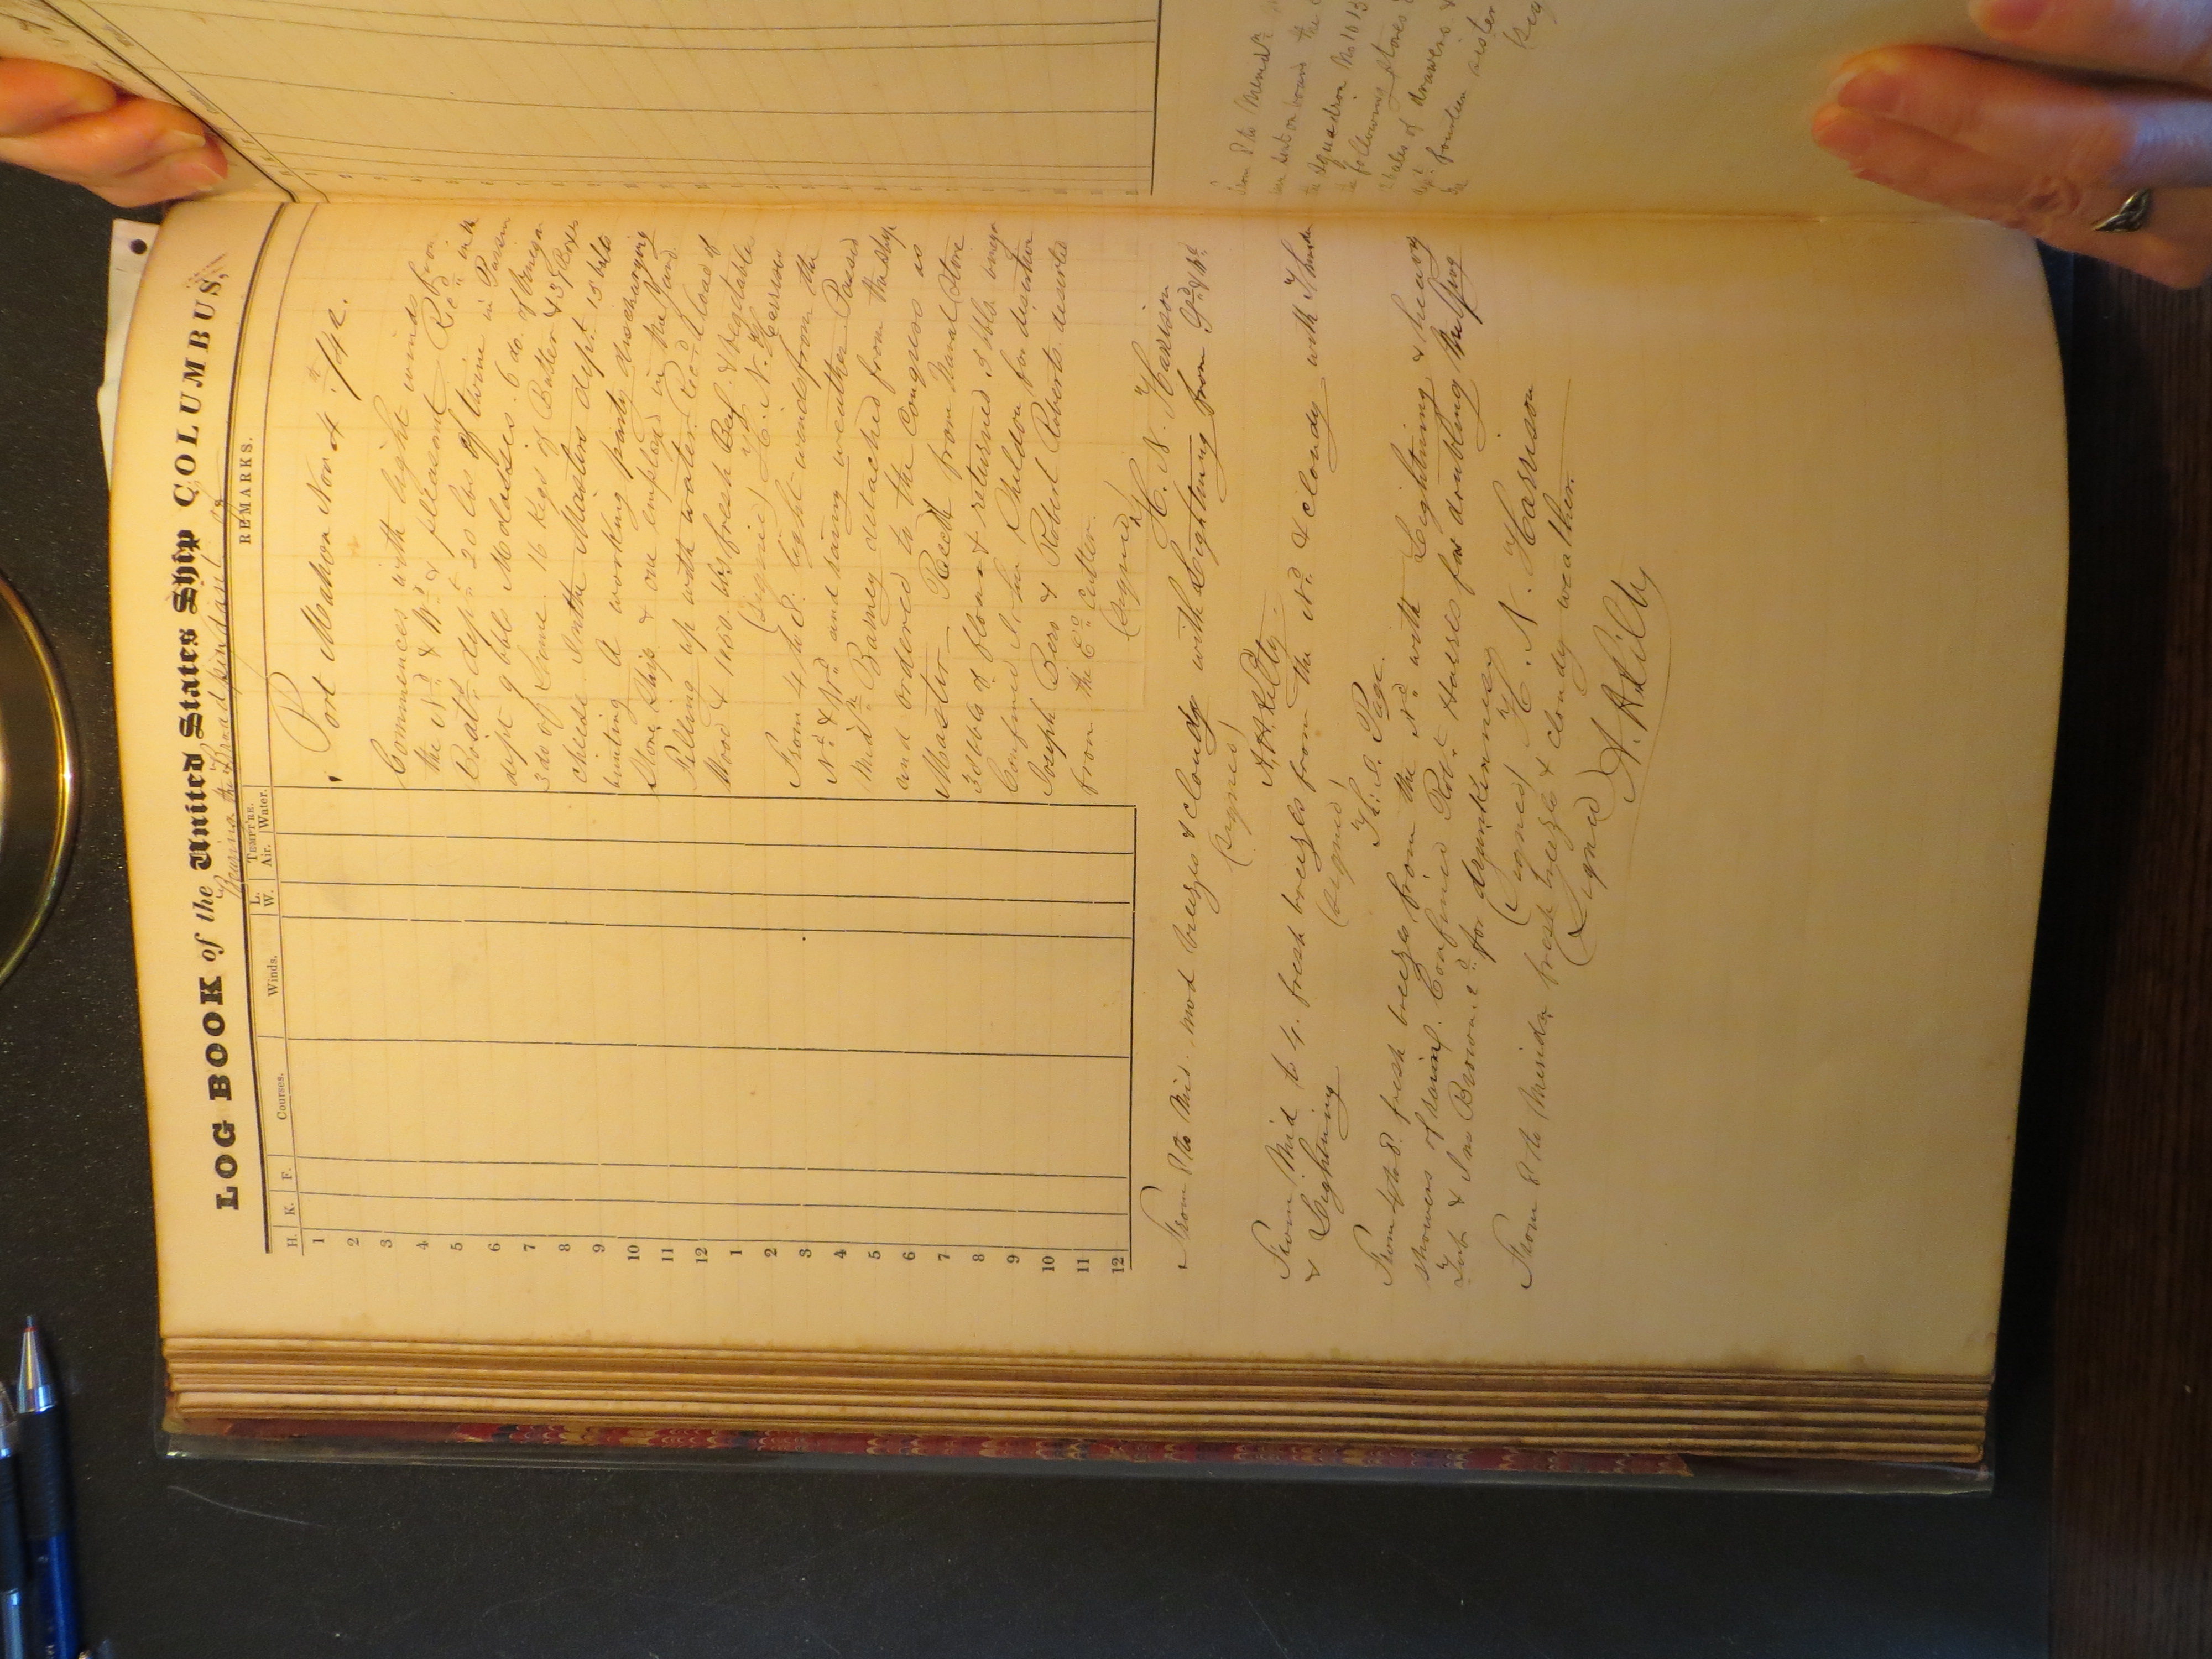 LOG BOOK of the United States Ship COLUMBUS,
Bearing the Broad pendant of
H. K. F. Courses. Winds. L. W. TEMPT'RE. Air. Water. REMARKS.
1
2
3
4
5
6
7
8
9
10
11
12
1
2
3
4
5
6
7
8
9
10
11
12
Port Mahon Nov 4th /42.
Commences with light winds from
the Nd & Wd & pleasant Recd in the
dept 20 lbs of twine in Pursers
dept 9 bbls Molasses. 6 do. of Vinegar
3 do of 16 Kegs of Butter & 3 Boxes
cheese In the Masters dept 15 bbls
A working party discharging
Store Ship & one employed in the Yard.
Filling up with water. Recd a load of
Wood & 1050 lbs fresh Beef & Vegetables
(Signed) H. N. Harrison
From 4 to 8. light winds from the
Nd & Wd and hazy weather Passed
Midn Barney detached from the ship
and ordered to the Congress as
Master. Recd from Naval Store
bbls of flour & returned 5 bbls vinegar
Confined Sheldon for desertion
Joseph & Robert Roberts deserted
from the Cutter.
(Signed) H. N. Harrison
From 8 to Mid. mod breezes & cloudy with Lightning from
(Signed)
A. H. Kilty
From Mid to 4. fresh breezes from the Nd & cloudy with Thunder
& Lightning
(Signed)
Th: J. Page.
From 4 to 8. fresh breezes from the Nd with Lightning & heavy
showers of rain. Confined Robt Hawes for doubling the grog
Tub & Jno Brown 2d for drunkenness
(Signed) H. N. Harrison
From 8 to Meridn fresh breezes & cloudy weather.
(Signed) A. H. Kilty
From 8 to Meridn
sent on board the
squadron No 10 13
following stores
bales of drawers &
fourteen